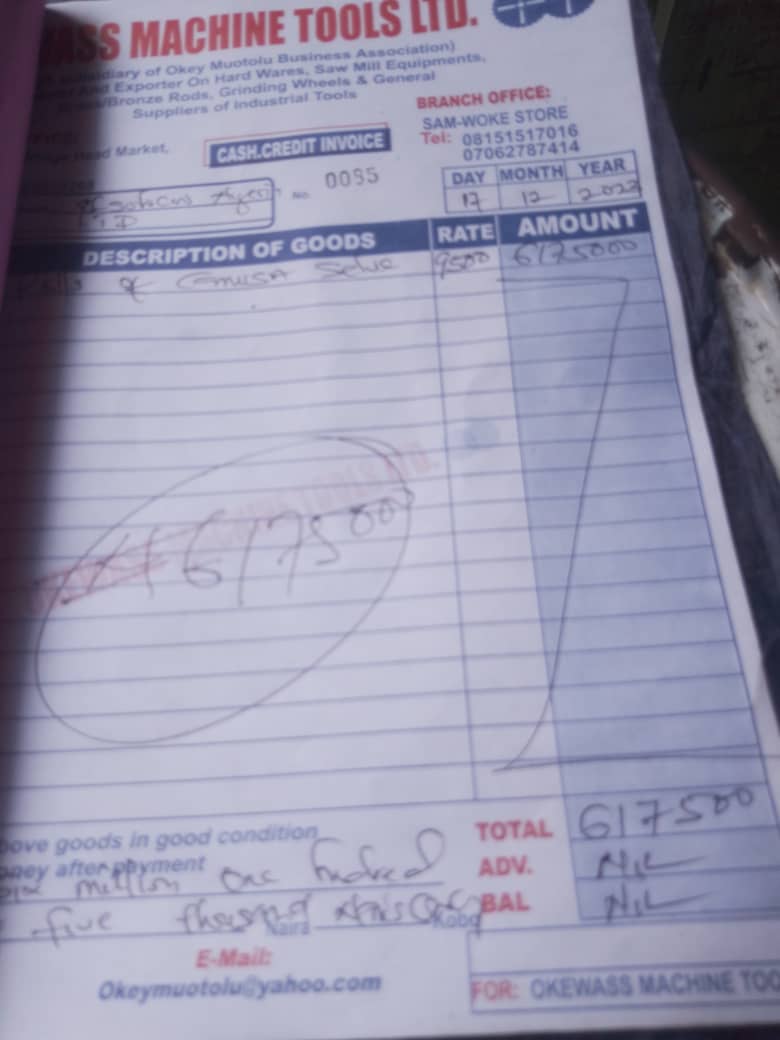 ASS MACHINE TOOLS LTD.
diary of Okey Muotolu Business Association)
And Exporter On Hard Wares, Saw Mill Equipments,
/Bronze Rods, Grinding Wheels & General
Suppliers of Industrial Tools
BRANCH OFFICE:
SAM-WOKE STORE
Tel: 08151517016
07062787414
Market,
CASH.CREDIT INVOICE
No. 0095
DAY MONTH YEAR
17 12
DESCRIPTION OF GOODS RATE AMOUNT
of 9500 6175000
MACHINE TOOLS LTD.
617500
ove goods in good condition
ney after payment
million one hundred
five thousand
Naira Kobo
TOTAL 617500
ADV. NIL
BAL NIL
E-Mail:
Okeymuotolu@yahoo.com
FOR: OKEWASS MACHINE TOO